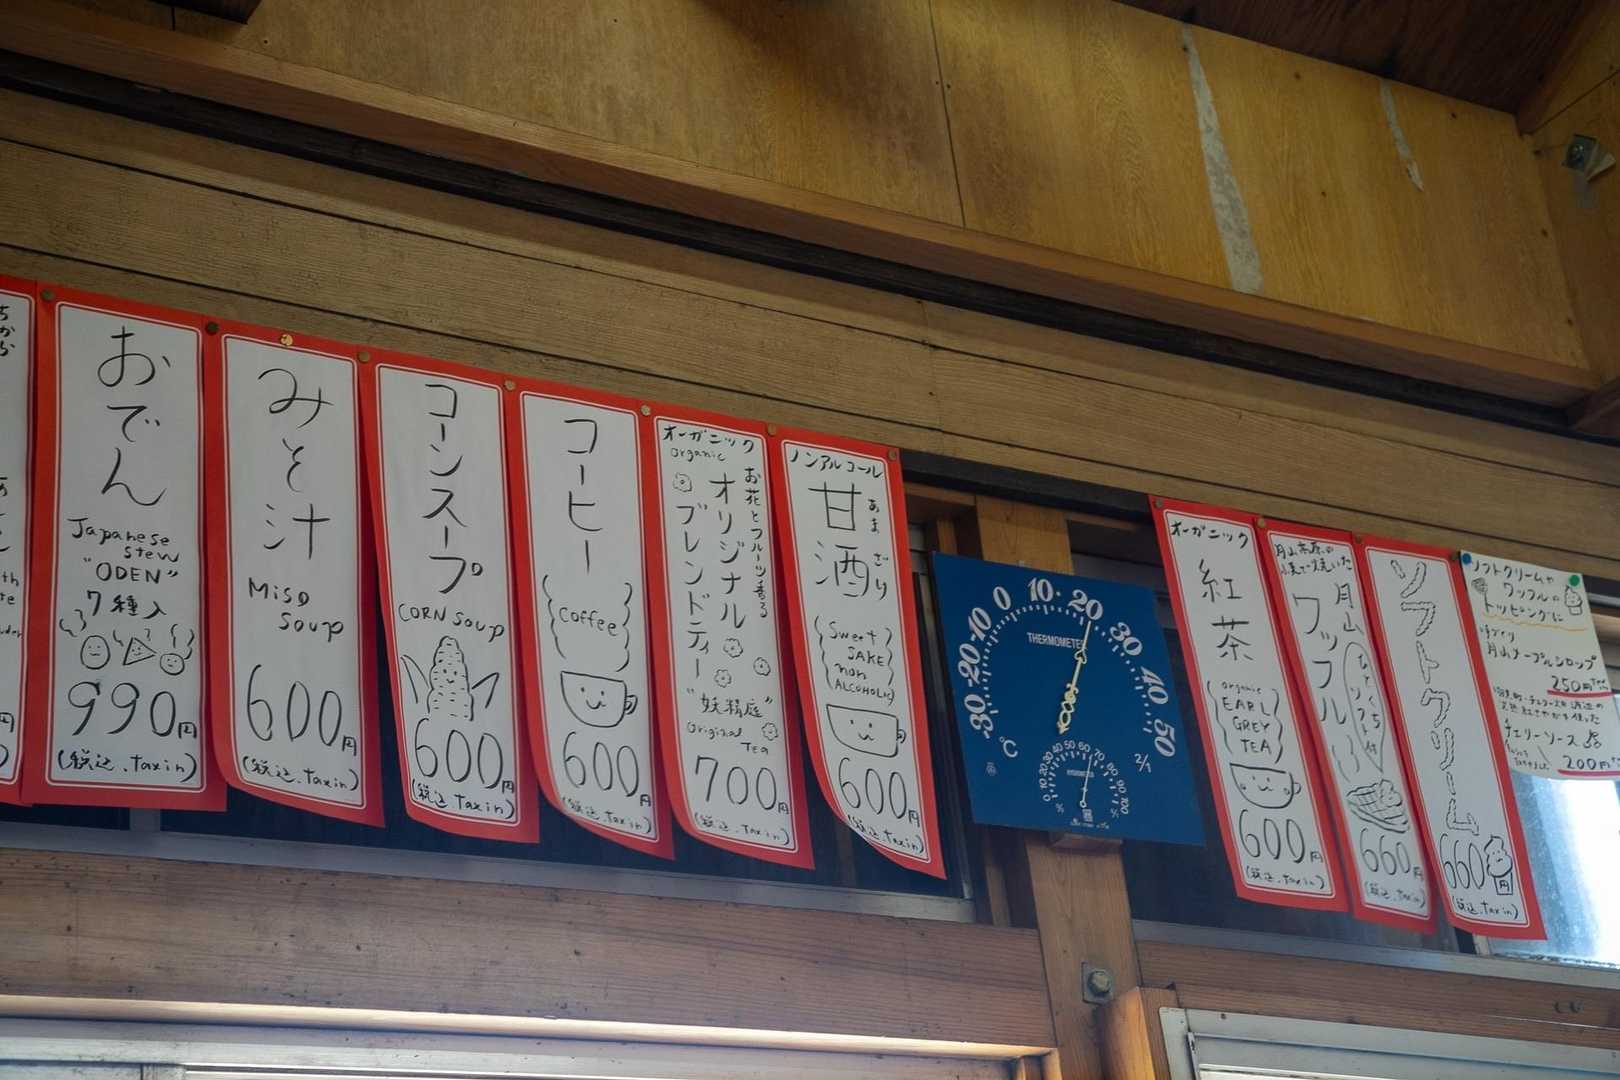 ちから
おでん
Japanese
stew
"ODEN"
7種入
990円
(税込.taxin)
みそ汁
Miso
Soup
600円
(税込.taxin)
コーンスープ
CORN SOUP
600円
(税込.taxin)
コーヒー
coffee
600円
(税込.taxin)
オーガニック
organic
お花とフルーツ香る
オリジナル
ブレンドティー
"妖精庭"
Original
Tea
700円
(税込.taxin)
ノンアルコール
甘酒
あまざけ
Sweet
SAKE
non
ALCOHOLIC
600円
(税込.taxin)
-30 -20 -10 0 10 20 30 40 50
THERMOMETER
℃
0 10 20 30 40 50 60 70 80 90 100
HYGROMETER
%
%
2/1
オーガニック
紅茶
organic
EARL
GREY
TEA
600円
(税込.taxin)
月山
ワッフル
ひとくち
ソフト付
660円
(税込.taxin)
ソフトクリーム
660円
(税込.taxin)
ソフトクリームや
ワッフルの
トッピングに
手づくり
月山メープルシロップ
250円
チェリーソース
200円